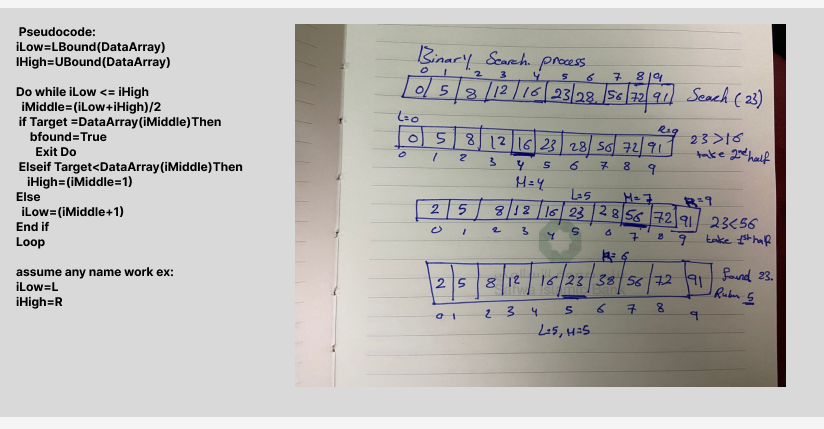 Pseudocode:
iLow=LBound(DataArray)
IHigh=UBound(DataArray)
Do while iLow <= iHigh
iMiddle=(iLow+iHigh)/2
if Target =DataArray(iMiddle)Then
bfound=True
Exit Do
Elseif Target<DataArray(iMiddle)Then
iHigh=(iMiddle=1)
Else
iLow=(iMiddle+1)
End if
Loop
assume any name work ex:
iLow=L
iHigh=R
Binary Search process
0 1 2 3 4 5 6 7 8 9
0 5 8 12 16 23 28 56 72 91 Seach (23)
L=0 R=9
0 5 8 12 16 23 28 56 72 91 23>16
take 2nd half
0 1 2 3 4 5 6 7 8 9
M=4
L=5 M=7 R=9
2 5 8 12 16 23 28 56 72 91 23<56
0 1 2 3 4 5 6 7 8 9 take 1st half
R=6
2 5 8 12 16 23 38 56 72 91 found 23.
5
0 1 2 3 4 5 6 7 8 9
L=5, M=5